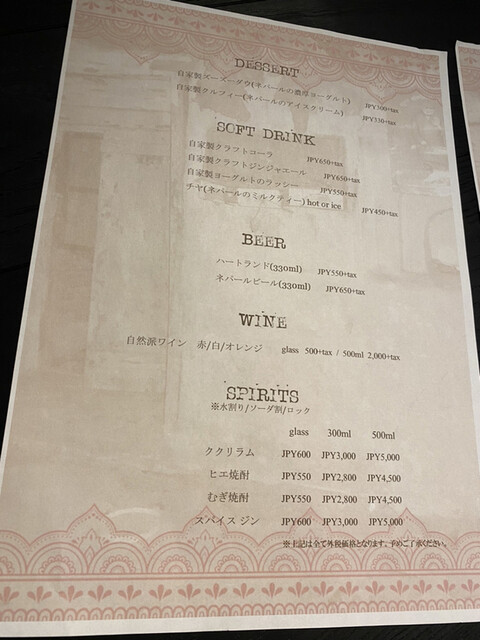 DESSERT
自家製ズーズーダウ(ネパールの濃厚ヨーグルト) JPY300+tax
自家製クルフィー(ネパールのアイスクリーム) JPY330+tax
SOFT DRINK
自家製クラフトコーラ JPY650+tax
自家製クラフトジンジャエール JPY650+tax
自家製ヨーグルトのラッシー JPY550+tax
チヤ(ネパールのミルクティー) hot or ice JPY450+tax
BEER
ハートランド(330ml) JPY550+tax
ネパールビール(330ml) JPY650+tax
WINE
自然派ワイン 赤/白/オレンジ glass 500+tax / 500ml 2,000+tax
SPIRITS
※水割り/ソーダ割/ロック
glass 300ml 500ml
ククリラム JPY600 JPY3,000 JPY5,000
ヒエ焼酎 JPY550 JPY2,800 JPY4,500
むぎ焼酎 JPY550 JPY2,800 JPY4,500
スパイス ジン JPY600 JPY3,000 JPY5,000
※上記は全て外税価格となります。予めご了承ください。